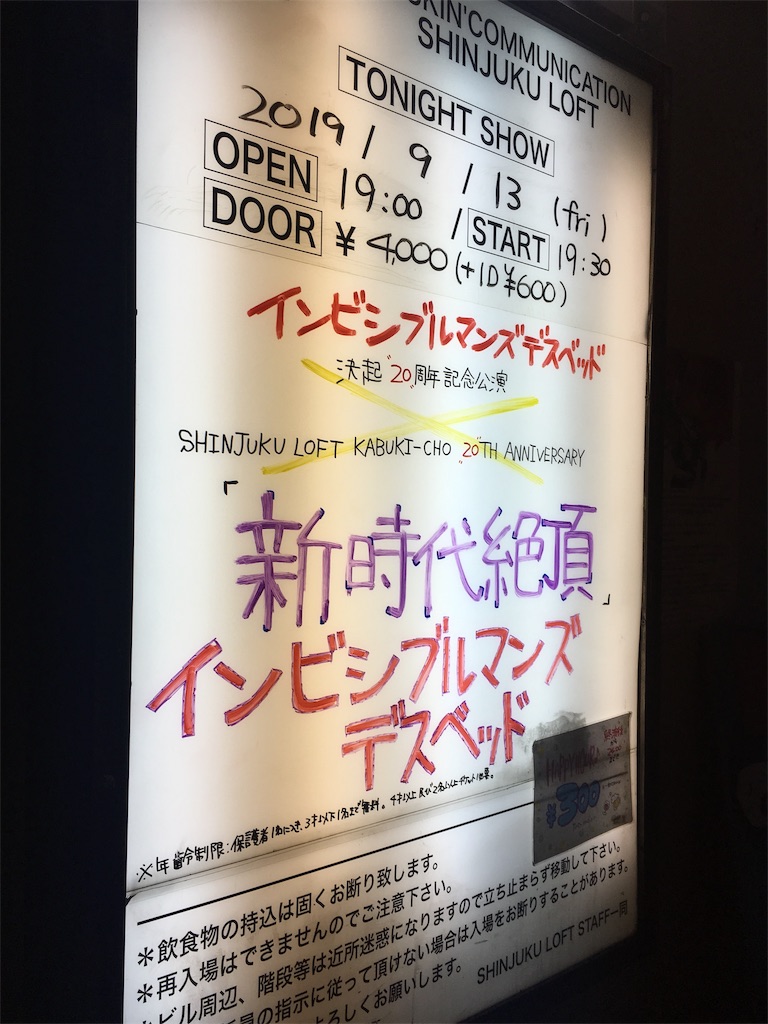 KIN'COMMUNICATION
SHINJUKU LOFT
TONIGHT SHOW
2019 / 9 / 13 (fri)
OPEN 19:00 / START 19:30
DOOR ¥4,000 (+1D ¥600)
インビシブルマンズデスベッド
決起"20"周年記念公演
SHINJUKU LOFT KABUKI-CHO "20"TH ANNIVERSARY
「新時代絶頂」
インビシブルマンズ
デスベッド
※年齢制限:保護者1名につき、3才以下1名まで無料。4才以上及び2名以上チケット必要。
HAPPY HOUR
¥300
*飲食物の持込は固くお断り致します。
*再入場はできませんのでご注意下さい。
*ビル周辺、階段等は近所迷惑になりますので立ち止まらず移動して下さい。
員の指示に従って頂けない場合は入場をお断りすることがあります。
よろしくお願いします。
SHINJUKU LOFT STAFF一同